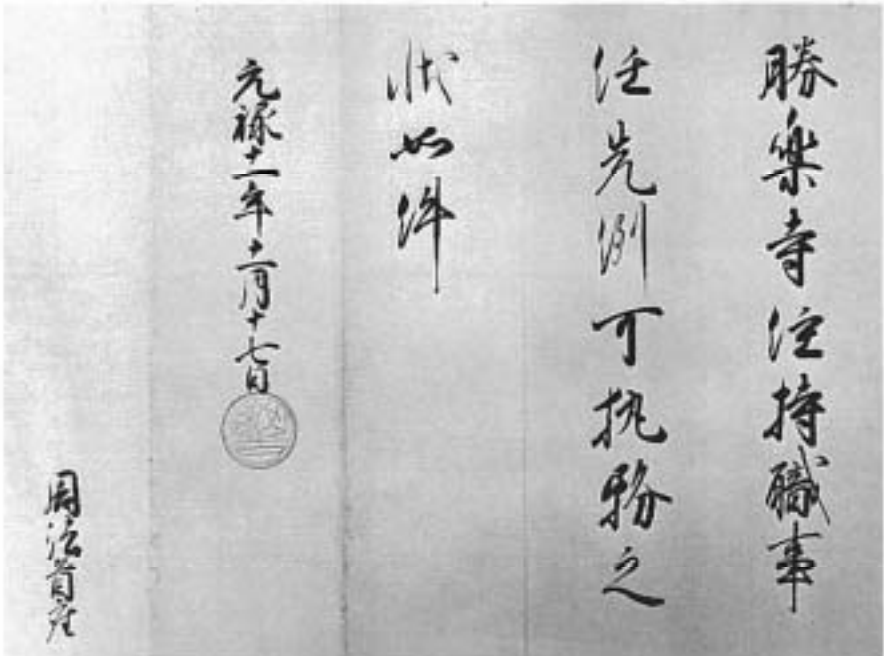 勝楽寺住持職事
任先例可執務之
状如件
元禄十一年十二月十七日
周法首座